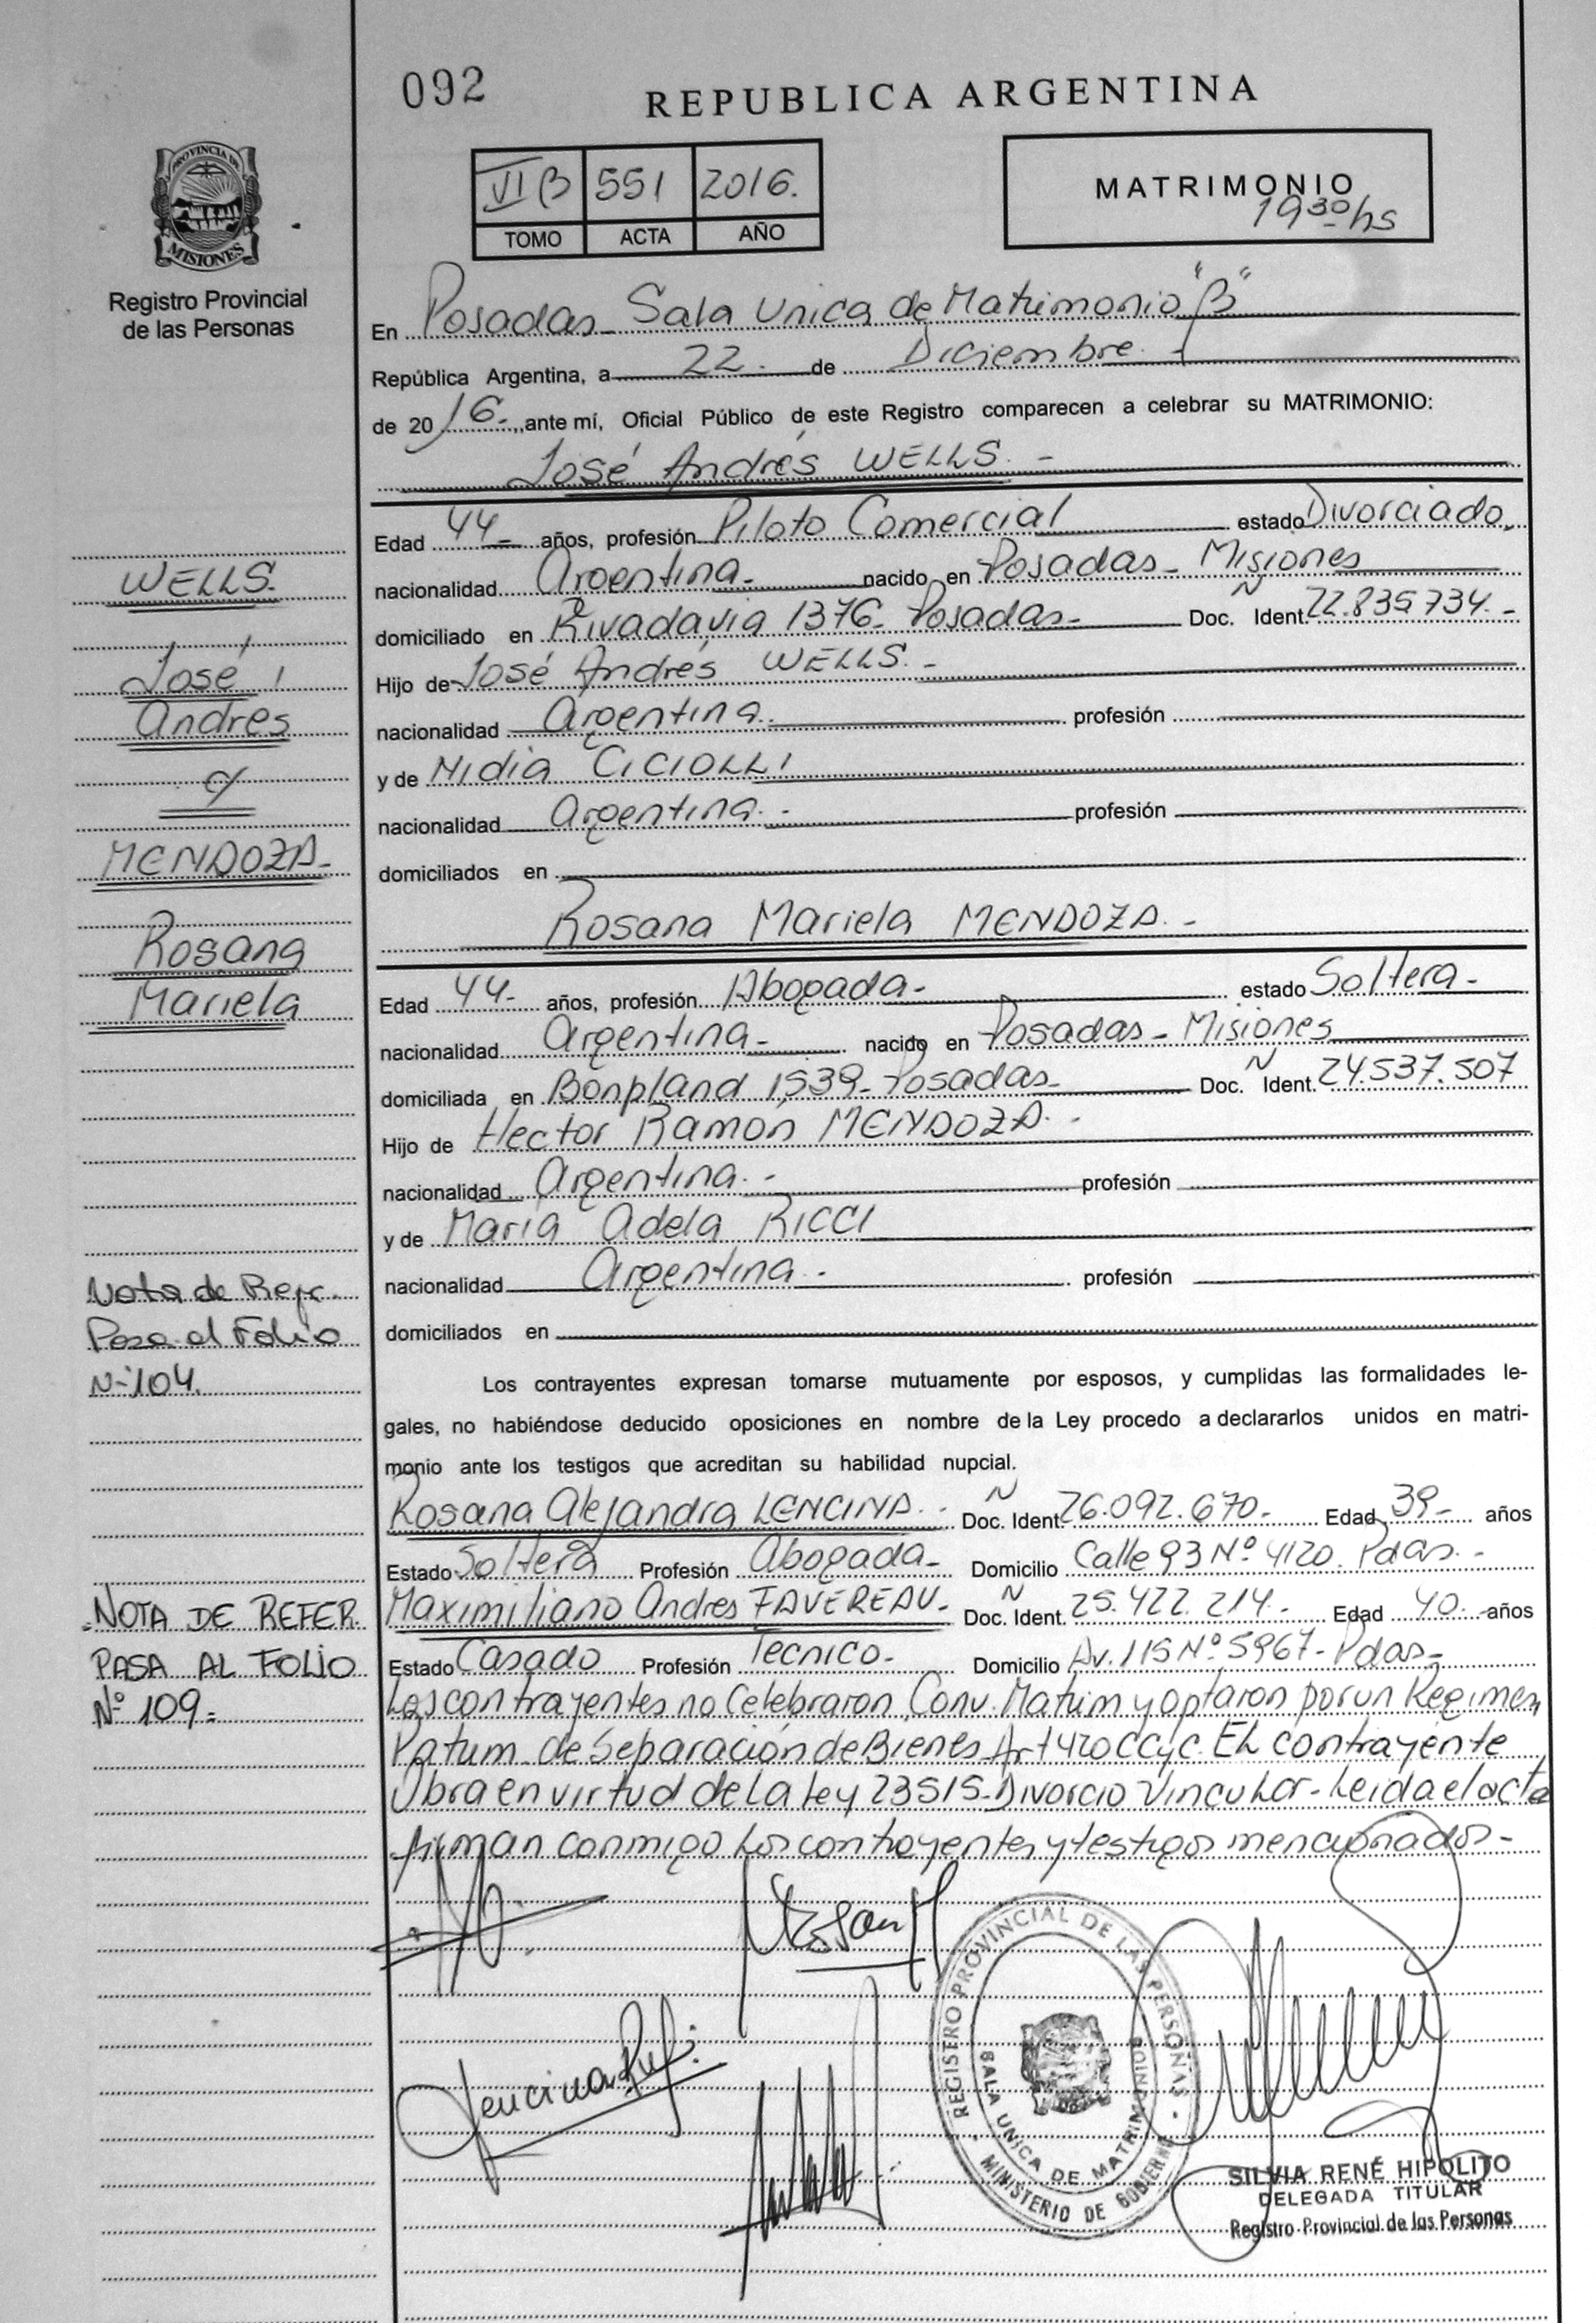 092
REPUBLICA ARGENTINA
PROVINCIA DE
MISIONES
Registro Provincial
de las Personas
VI B 551 2016.
TOMO ACTA AÑO
MATRIMONIO
19 30 hs
En Posadas - Sala Unica de Matrimonio "B"
República Argentina, a 22. de Diciembre. -
de 2016.-, ante mí, Oficial Público de este Registro comparecen a celebrar su MATRIMONIO:
José Andrés WELLS. -
Edad 44- años, profesión Piloto Comercial estado Divorciado.
nacionalidad Argentina.- nacido en Posadas - Misiones
domiciliado en Rivadavia 1376- Posadas- Doc. N Ident. 22.835734. -
Hijo de José Andrés WELLS. -
nacionalidad Argentina. profesión
y de Nidia CICIOLLI
nacionalidad Argentina. - profesión
domiciliados en
Rosana Mariela MENDOZA. -
Edad 44- años, profesión Abogada- estado Soltera -
nacionalidad Argentina.- nacido en Posadas - Misiones
domiciliada en Bonpland 1539- Posadas- Doc. N Ident. 24.537.507
Hijo de Hector Ramón MENDOZA. -
nacionalidad Argentina. - profesión
y de María Adela RICCI
nacionalidad Argentina. - profesión
domiciliados en
Los contrayentes expresan tomarse mutuamente por esposos, y cumplidas las formalidades le-
gales, no habiéndose deducido oposiciones en nombre de la Ley procedo a declararlos unidos en matri-
monio ante los testigos que acreditan su habilidad nupcial.
Rosana Alejandra LENCINA. - Doc. N Ident. 26.092.670.- Edad 39- años
Estado Soltera Profesión Abogada- Domicilio Calle 93 Nº 4120. Pdas. -
Maximiliano Andres FAVEREAU. - Doc. N Ident. 25.422.214- Edad 40.- años
Estado Casado Profesión Tecnico. Domicilio Av. 115 Nº 5967- Pdas-
Los contrayentes no Celebraron Conv. Matrim y optaron por un Régimen
Patrim. de Separación de Bienes Art 420 CCyC. El contrayente
Obra en virtud de la Ley 23515- Divorcio Vincular - Leída el acta
firman conmigo los contrayentes y testigos mencionados -
WELLS.
José
Andrés
c/
MENDOZA-
Rosana
Mariela
Nota de Refc.
Pasa al Folio
Nº 104.
NOTA DE REFER.
PASA AL FOLIO
Nº 109.-
Rosana M
Lencina Ruf.
REGISTRO PROVINCIAL DE LAS PERSONAS
SALA UNICA DE MATRIMONIOS
MINISTERIO DE GOBIERNO
SILVIA RENÉ HIPOLITO
DELEGADA TITULAR
Registro Provincial de las Personas